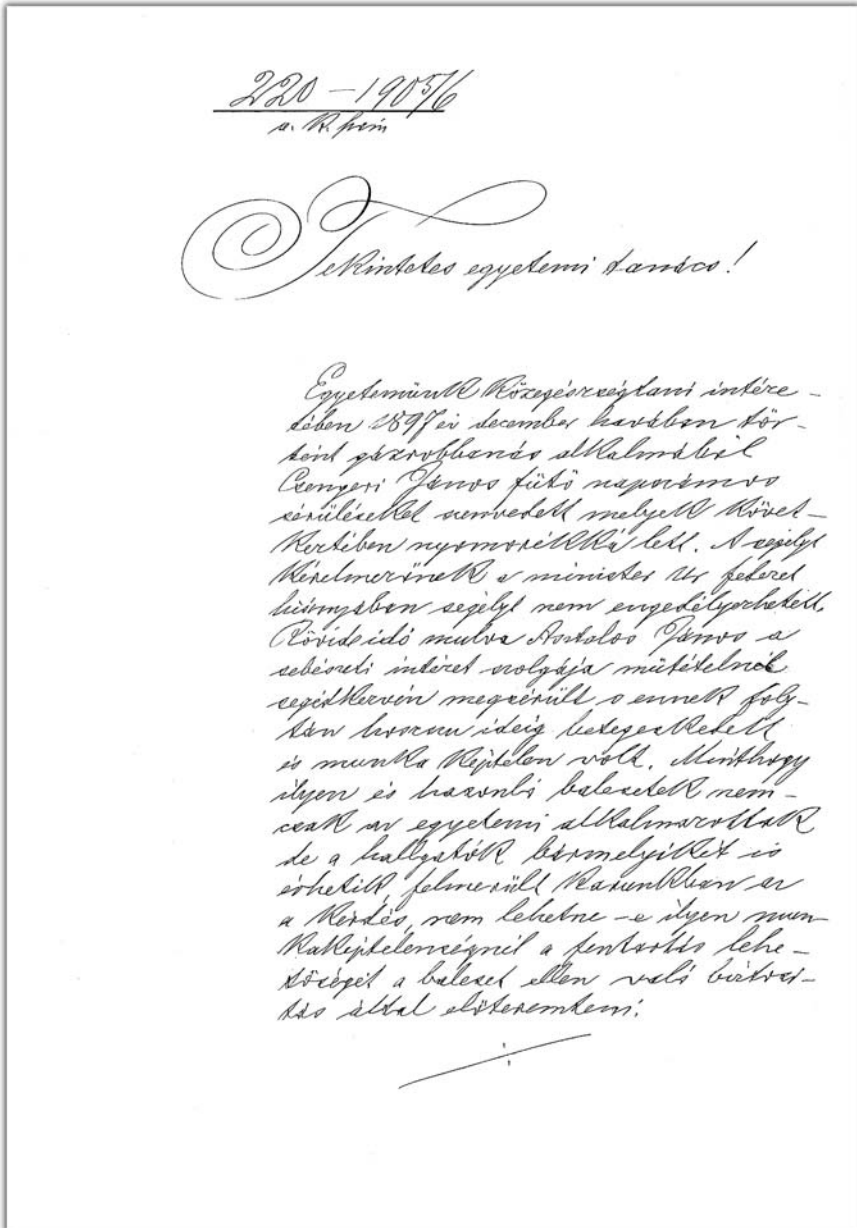 220 – 1905/6
Tekintetes egyetemi tanács!
Egyetemünk közegészségtani intéze-
tében 1897 év december havában tör-
tént gázrobbanás alkalmából
Csengeri János fütő
sérüléseket szenvedett melyek követ-
keztében nyomorékká lett. A segélyt
kérelmezőnek a minister úr fedezet
hiányában segélyt nem engedélyezhetett.
Rövid idő mulva Asztalos János a
sebészeti intézet szolgája műtételnél
segédkezvén megsérült s ennek foly-
tán hosszu ideig betegeskedett
és munka képtelen volt. Minthogy
ilyen és hasonló balesetek nem-
csak az egyetemi alkalmazottak
de a hallgatók bármelyikét is
érhetik, felmerült karunkban az
a kérdés, nem lehetne-e ilyen mun-
kaképtelenségnél a fentartás lehe-
tőségét a baleset ellen való biztosi-
tás által előteremteni.